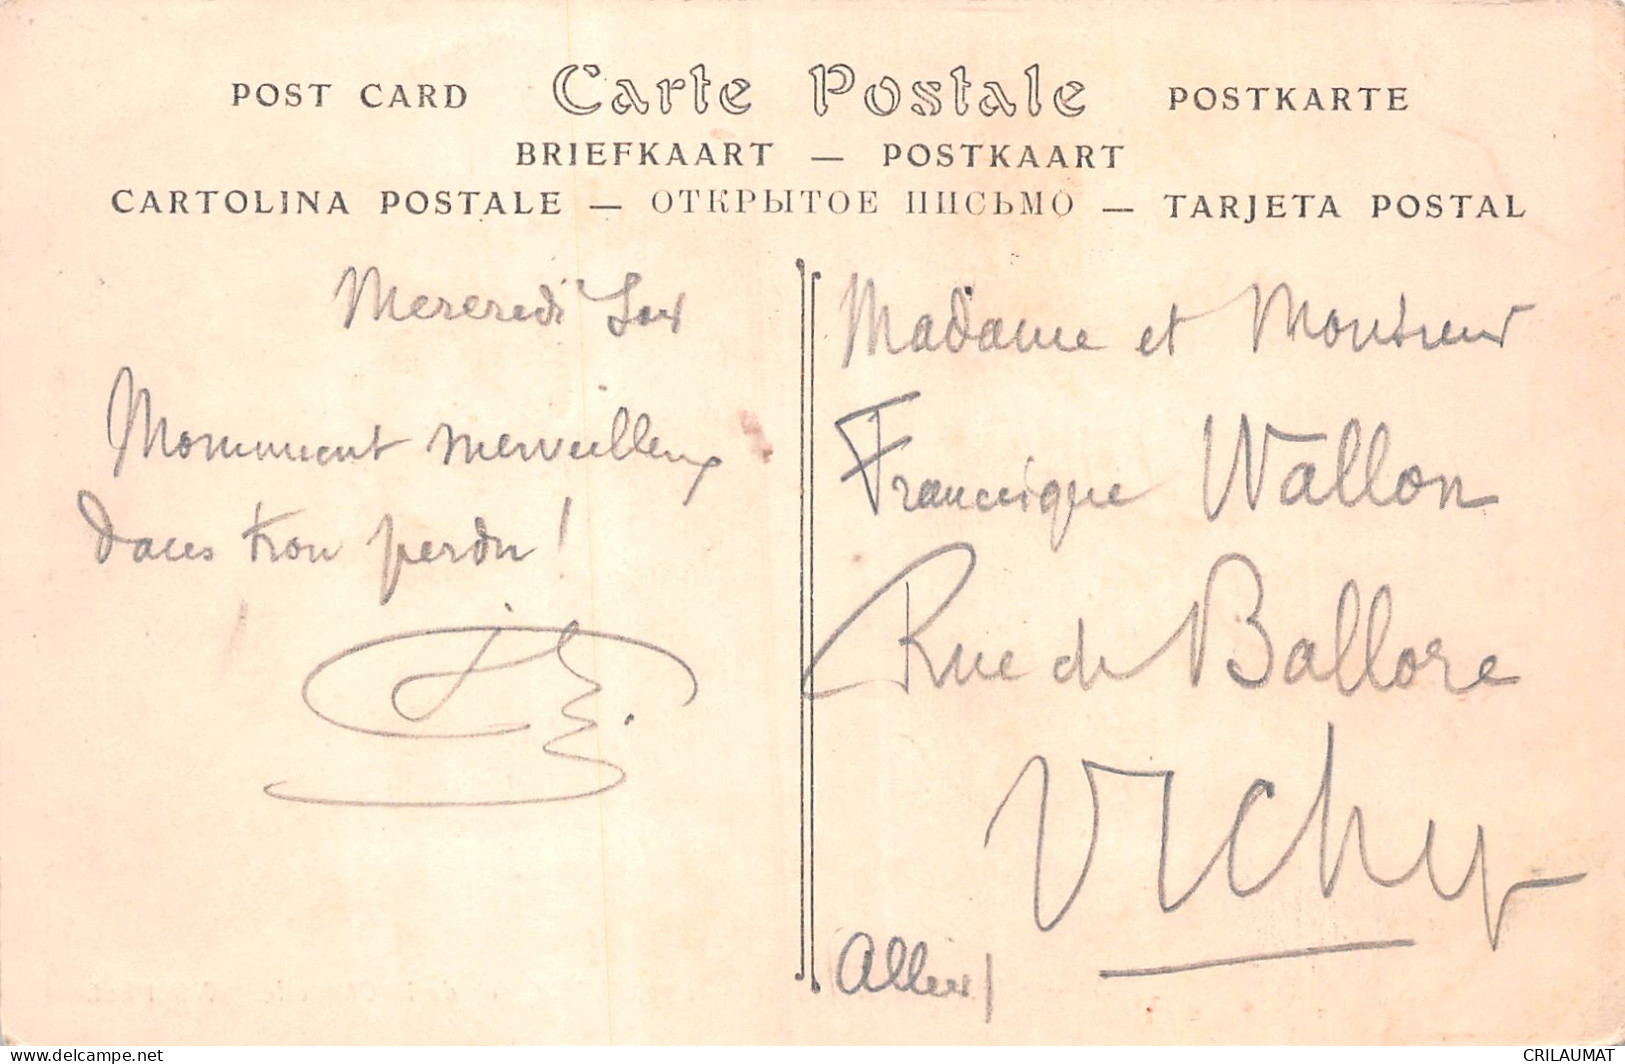 POST CARD Carte Postale POSTKARTE
BRIEFKAART — POSTKAART
CARTOLINA POSTALE — ОТКРЫТОЕ ПИСЬМО — TARJETA POSTAL
Mercredi Soir
Monument merveilleux
dans trou perdu !
Madame et Monsieur
Francisque Wallon
Rue de Ballore
Vichy
Allier
CRILAUMAT